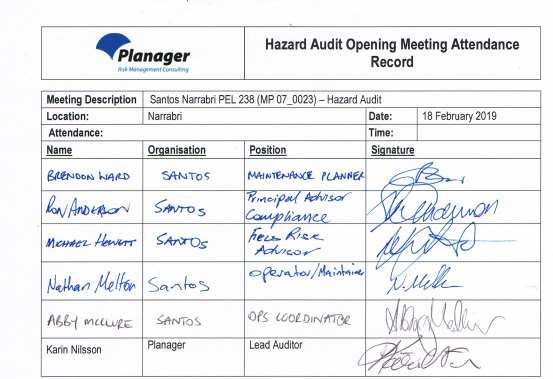 Planager
Risk Management Consulting
Hazard Audit Opening Meeting Attendance
Record
Meeting Description Santos Narrabri PEL 238 (MP 07_0023) – Hazard Audit
Location: Narrabri Date: 18 February 2019
Attendance: Time:
Name Organisation Position Signature
BRENDON WARD SANTOS MAINTENANCE PLANNER
RON ANDERSON SANTOS Principal Advisor
Compliance
MICHAEL HEWITT SANTOS Field Risk
Advisor
Nathan Melton Santos Operator/Maintainer N. Melton
ABBY MCCLURE SANTOS OPS COORDINATOR
Karin Nilsson Planager Lead Auditor